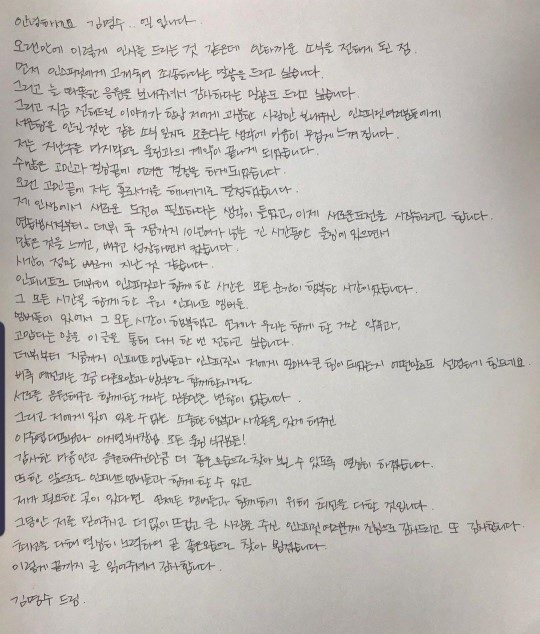 안녕하세요 김명수.. 엘 입니다.
오랜만에 이렇게 인사를 드리는 것 같은데 안타까운 소식을 전하게 된 점.
먼저 인스피릿에게 고개숙여 죄송하다는 말씀을 드리고 싶습니다.
그리고 늘 따뜻한 응원을 보내주셔서 감사하다는 말씀도 드리고 싶습니다.
그리고 지금 전해드릴 이야기가 항상 저에게 과분한 사랑만 보내주신 인스피릿여러분들에게
서운함을 안긴 것만 같은 소식 일지도 모른다는 생각에 마음이 무겁게 느껴집니다.
저는 지난주를 마지막으로 울림과의 계약이 끝나게 되었습니다.
수많은 고민과 결정끝에 어려운 결정을 하게되었습니다.
오랜 고민끝에 저는 홀로서기를 해나가기로 결정하였습니다.
제 인생에서 새로운 도전이 필요하다는 생각이 들었고, 이제 새로운도전을 시작하려고 합니다.
연습생시절부터.. 데뷔 후 지금까지 10년여가 넘는 긴 시간동안 울림에 있으면서
많은 것을 느끼고, 배우고 성장하면서 컸습니다.
시간이 정말 빠르게 지난 것 같습니다.
인피니트로 데뷔해 인스피릿과 함께 한 시간은 모든 순간이 행복한 시간이었습니다.
그 모든 시간을 함께 한 우리 인피니트 멤버들.
멤버들이 있어서 그 모든 시간이 행복했고 언제나 우리는 함께 할 거란 약속과,
고맙다는 말을 이 글을 통해 다시 한 번 전하고 싶습니다.
데뷔부터 지금까지 인피니트 멤버들과 인스피릿이 저에게 얼마나 큰 힘이 되었는지 어떤말로도 설명하기 힘드네요.
비록 예전과는 조금 다른모양과 방식으로 함께할지라도
서로를 응원해주고 함께할 거라는 믿음만은 변함이 없습니다.
그리고 저에게 있어 잊을 수 없는 소중한 행복과 시간들을 있게 해주신
이중엽 대표님과 이지영 부사장님 모든 울림 식구분들!
감사한 마음안고 응원해주신만큼 더 좋은모습으로 찾아 뵐 수 있도록 열심히 하겠습니다.
또한 앞으로도 인피니트멤버들과 함께 할 수 있고
제가 필요한 곳이 있다면 언제든 멤버들과 함께하기 위해 최선을 다할 것입니다.
그동안 저를 믿어주시고 더없이 뜨겁고 큰 사랑을 주신 인스피릿여러분께 진심으로 감사드리고 또 감사합니다.
최선을 다해 열심히 노력하여 곧 좋은모습으로 찾아 뵙겠습니다.
이렇게 끝까지 글 읽어주셔서 감사합니다.
김명수 드림.